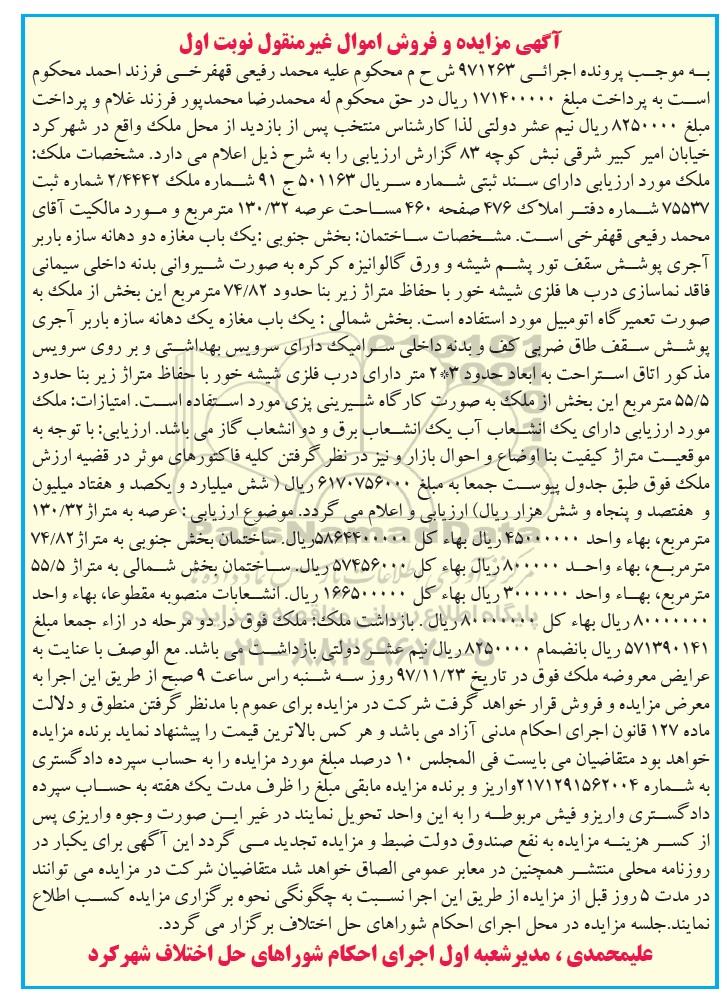 آگهی مزایده و فروش اموال غیرمنقول نوبت اول
به موجب پرونده اجرائی ۹۷۱۲۶۳ ش ح م محکوم علیه محمد رفیعی قهفرخی فرزند احمد محکوم
است به پرداخت مبلغ ۱۷۱۴۰۰۰۰۰ ریال در حق محکوم له محمدرضا محمدپور فرزند غلام و پرداخت
مبلغ ۸۲۵۰۰۰۰ ریال نیم عشر دولتی لذا کارشناس منتخب پس از بازدید از محل ملک واقع در شهرکرد
خیابان امیر کبیر شرقی نبش کوچه ۸۳ گزارش ارزیابی را به شرح ذیل اعلام می دارد. مشخصات ملک:
ملک مورد ارزیابی دارای سند ثبتی شماره سریال ۵۰۱۱۶۳ ج ۹۱ شماره ملک ۲/۴۴۴۲ شماره ثبت
۷۵۵۳۷ شماره دفتر املاک ۴۷۶ صفحه ۴۶۰ مساحت عرصه ۱۳۰/۳۲ مترمربع و مورد مالکیت آقای
محمد رفیعی قهفرخی است. مشخصات ساختمان: بخش جنوبی :یک باب مغازه دو دهانه سازه باربر
آجری پوشش سقف تور پشم شیشه و ورق گالوانیزه کرکره به صورت شیروانی بدنه داخلی سیمانی
فاقد نماسازی درب ها فلزی شیشه خور با حفاظ متراژ زیر بنا حدود ۷۴/۸۲ مترمربع این بخش از ملک به
صورت تعمیرگاه اتومبیل مورد استفاده است. بخش شمالی : یک باب مغازه یک دهانه سازه باربر آجری
پوشش سقف طاق ضربی کف و بدنه داخلی سرامیک دارای سرویس بهداشتی و بر روی سرویس
مذکور اتاق استراحت به ابعاد حدود ۳*۲ متر دارای درب فلزی شیشه خور با حفاظ متراژ زیر بنا حدود
۵۵/۵ مترمربع این بخش از ملک به صورت کارگاه شیرینی پزی مورد استفاده است. امتیازات: ملک
مورد ارزیابی دارای یک انشعاب آب یک انشعاب برق و دو انشعاب گاز می باشد. ارزیابی: با توجه به
موقعیت متراژ کیفیت بنا اوضاع و احوال بازار و نیز در نظر گرفتن کلیه فاکتورهای موثر در قضیه ارزش
ملک فوق طبق جدول پیوست جمعا به مبلغ ۶۱۷۰۷۵۶۰۰۰ ریال ( شش میلیارد و یکصد و هفتاد میلیون
و هفتصد و پنجاه و شش هزار ریال) ارزیابی و اعلام می گردد. موضوع ارزیابی : عرصه به متراژ ۱۳۰/۳۲
مترمربع، بهاء واحد ۴۵۰۰۰۰۰۰ ریال بهاء کل ۵۸۶۴۴۰۰۰۰۰ریال. ساختمان بخش جنوبی به متراژ ۷۴/۸۲
مترمربع، بهاء واحد ۸۰۰۰۰۰ ریال بهاء کل ۵۷۴۵۶۰۰۰ ریال. ساختمان بخش شمالی به متراژ ۵۵/۵
مترمربع، بهاء واحد ۳۰۰۰۰۰۰ ریال بهاء کل ۱۶۶۵۰۰۰۰۰ ریال. انشعابات منصوبه مقطوعا، بهاء واحد
۸۰۰۰۰۰۰۰ ریال بهاء کل ۸۰۰۰۰۰۰۰ ریال. بازداشت ملک: ملک فوق در دو مرحله در ازاء جمعا مبلغ
۵۷۱۳۹۰۱۴۱ ریال بانضمام ۸۲۵۰۰۰۰ ریال نیم عشر دولتی بازداشت می باشد. مع الوصف با عنایت به
عرایض معروضه ملک فوق در تاریخ ۹۷/۱۱/۲۳ روز سه شنبه راس ساعت ۹ صبح از طریق این اجرا به
معرض مزایده و فروش قرار خواهد گرفت شرکت در مزایده برای عموم با مدنظر گرفتن منطوق و دلالت
ماده ۱۲۷ قانون اجرای احکام مدنی آزاد می باشد و هر کس بالاترین قیمت را پیشنهاد نماید برنده مزایده
خواهد بود متقاضیان می بایست فی المجلس ۱۰ درصد مبلغ مورد مزایده را به حساب سپرده دادگستری
به شماره ۲۱۷۱۲۹۱۵۶۲۰۰۴واریز و برنده مزایده مابقی مبلغ را ظرف مدت یک هفته به حساب سپرده
دادگستری واریزو فیش مربوطه را به این واحد تحویل نمایند در غیر این صورت وجوه واریزی پس
از کسر هزینه مزایده به نفع صندوق دولت ضبط و مزایده تجدید می گردد این آگهی برای یکبار در
روزنامه محلی منتشر همچنین در معابر عمومی الصاق خواهد شد متقاضیان شرکت در مزایده می توانند
در مدت ۵ روز قبل از مزایده از طریق این اجرا نسبت به چگونگی نحوه برگزاری مزایده کسب اطلاع
نمایند.جلسه مزایده در محل اجرای احکام شوراهای حل اختلاف برگزار می گردد.
علیمحمدی ، مدیرشعبه اول اجرای احکام شوراهای حل اختلاف شهرکرد